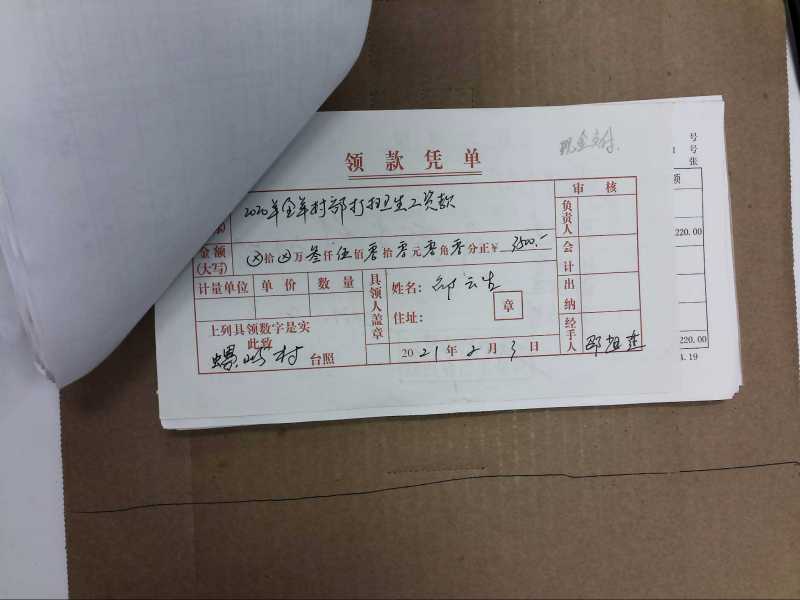 领款凭单
现金支付
审核
2020年全年村部打扫卫生工资款
负责人
金额(大写) 拾 万叁仟伍佰零拾零元零角零分正¥3500.—
会计
计量单位 单价 数量
具领人盖章
姓名:邵云
住址:
章
出纳
上列具领数字是实
此致
村 台照
2021年2月3日
经手人 邵
号
号
张
额
220.00
220.00
.19